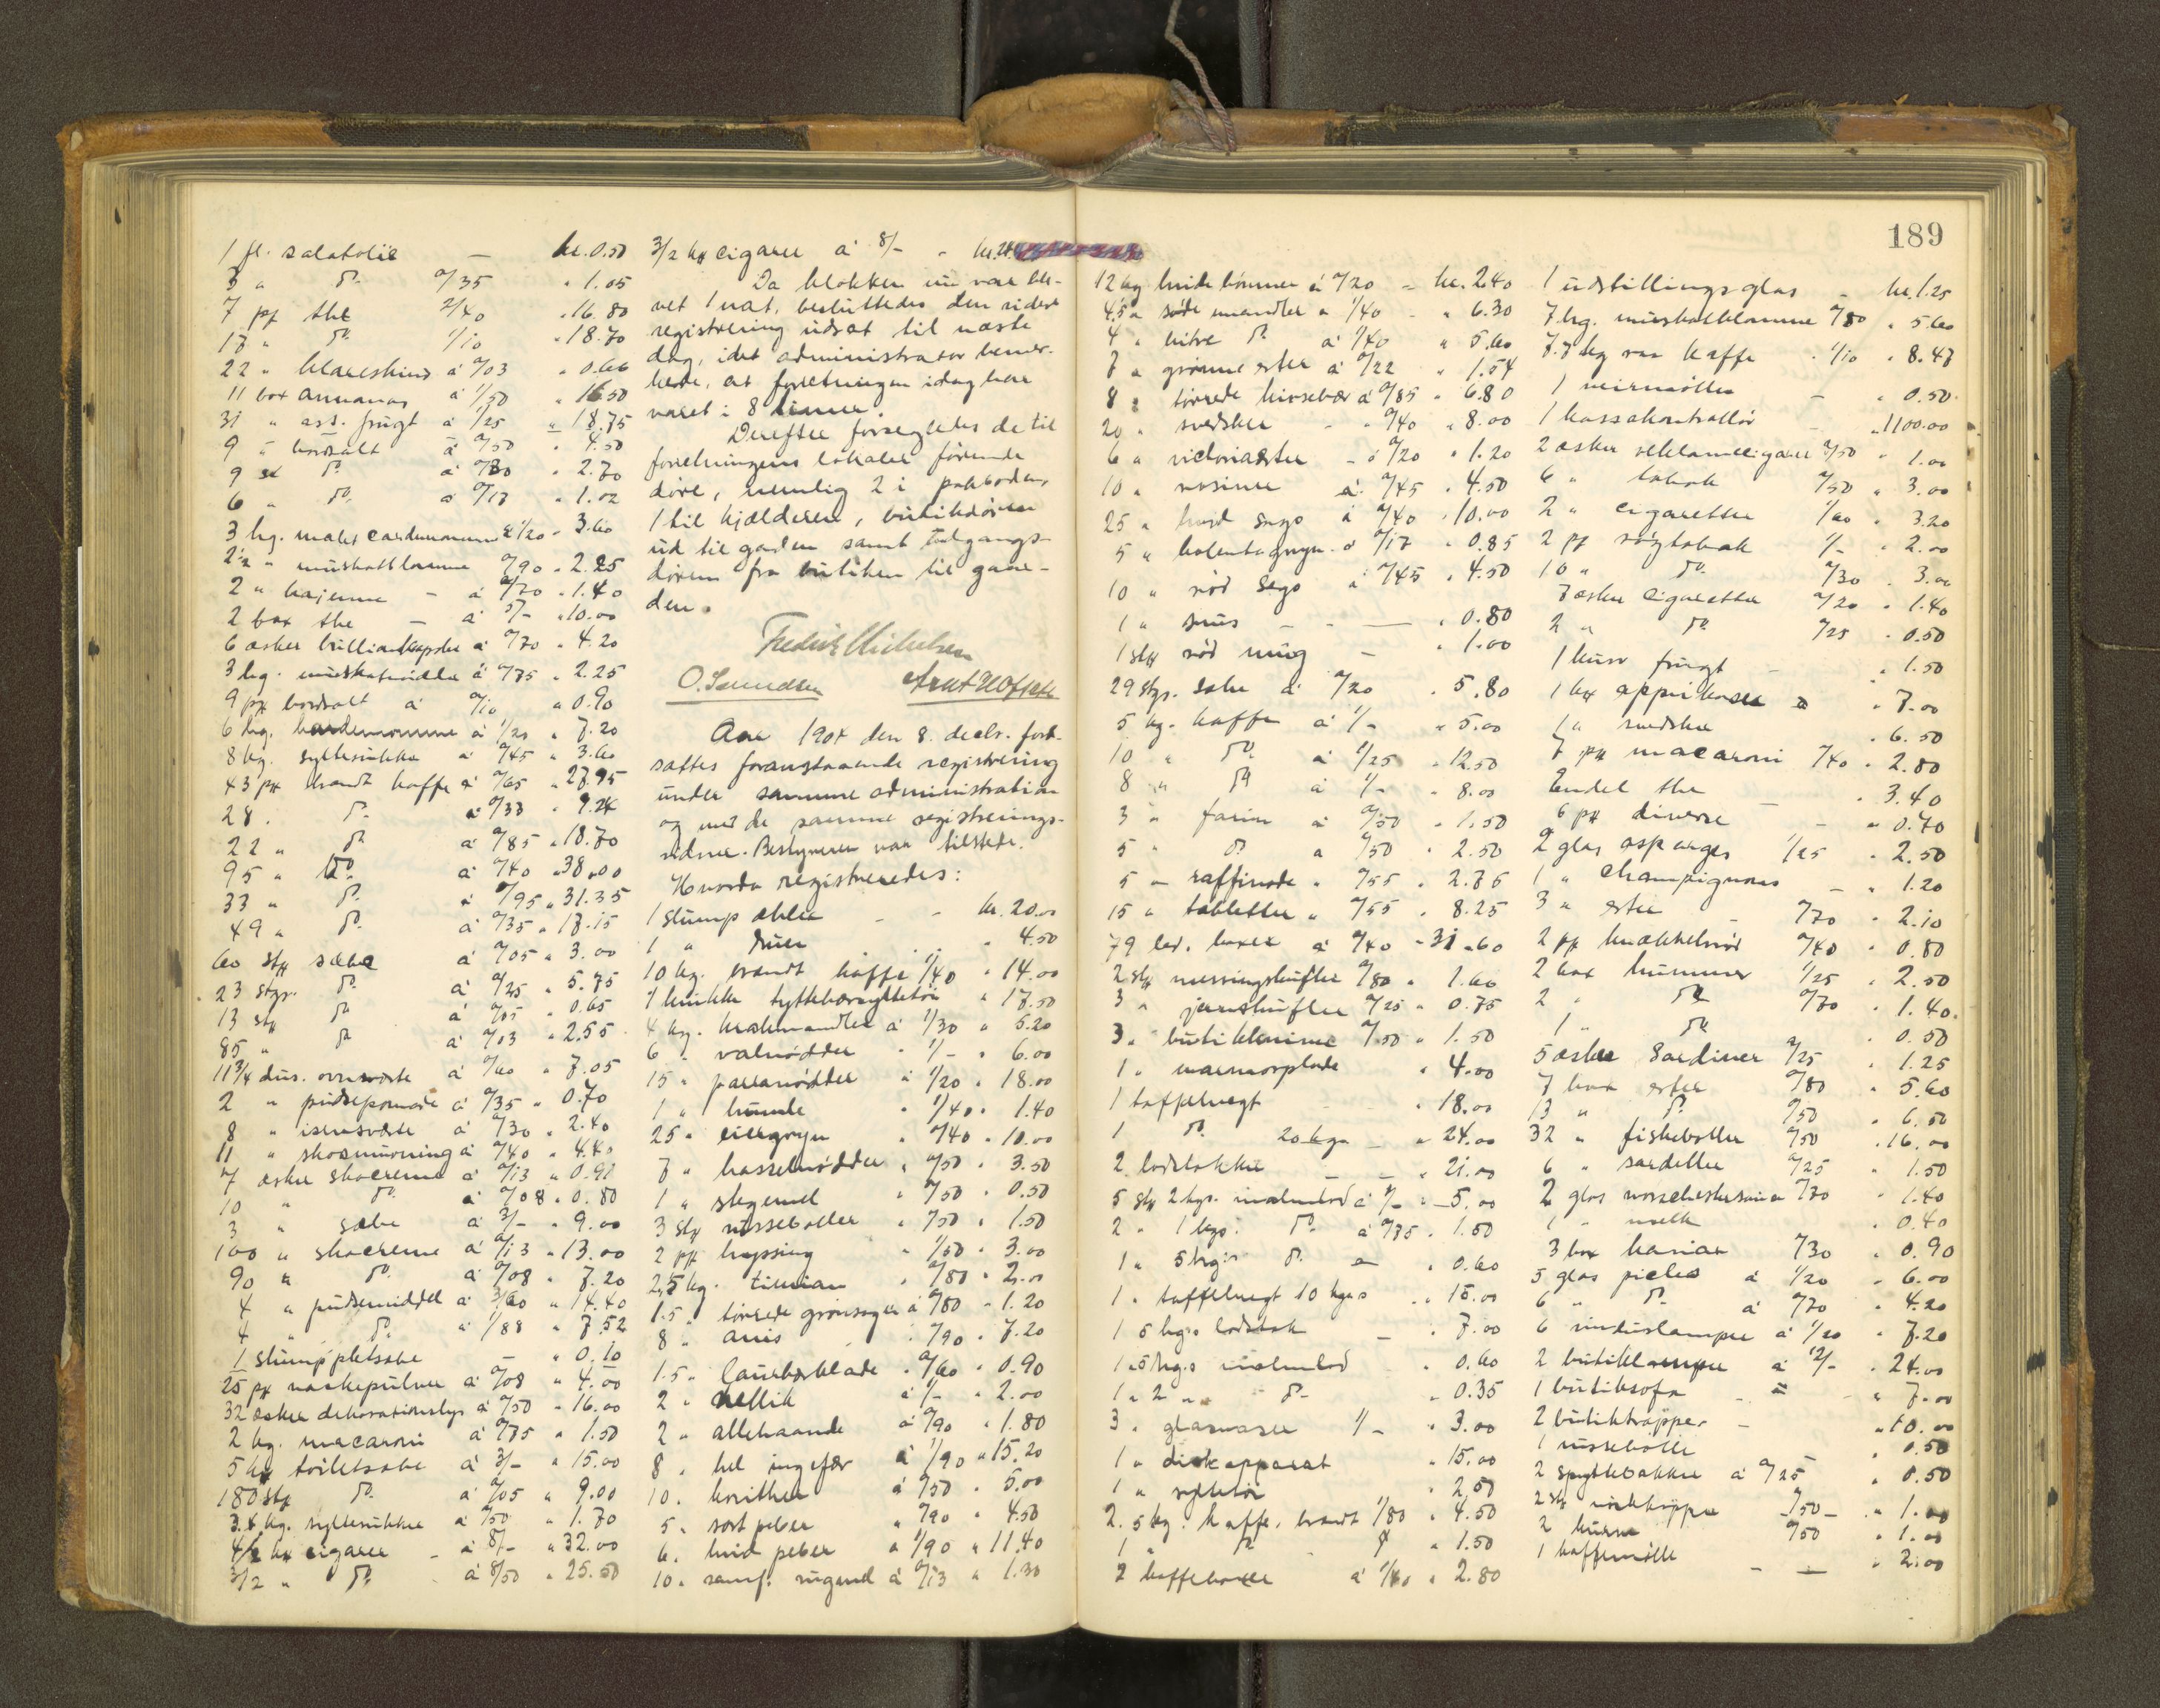 1 fl. salatolie — kr. 0.50
3 " do. 0/35 " 1.05
7 pk the 2/40 " 16.80
17 " do. 1/10 " 18.70
22 " klareskind à 0/03 " 0.66
11 box annanas à 1/50 " 16.50
31 " ass. frugt à 1/25 " 18.75
9 " bordsalt à 0/50 " 4.50
9 " do. à 0/30 " 2.70
6 " do. à 0/17 " 1.02
3 hg. malet cardemomme à 1/20 " 3.60
2½ " muskatblomme 0/90 " 2.25
2 " kajenne — à 0/70 " 1.40
2 box the — à 5/- " 10.00
6 æsker à 0/70 " 4.20
3 hg. muskatnødder à 0/75 " 2.25
9 pk bordsalt à 0/10 " 0.90
6 hg. kardemomme à 1/20 " 7.20
8 kg. syltesukker à 0/45 " 3.60
43 pk brændt kaffe à 0/65 " 27.95
28 " do. à 0/33 " 9.24
22 " do. à 0/85 " 18.70
95 " do. à 0/40 " 38.00
33 " do. à 0/95 " 31.35
49 " do. à 0/35 " 17.15
60 stk sæbe à 0/05 " 3.00
23 stgr. do. à 0/25 " 5.75
13 stk do. à 0/05 " 0.65
85 " do. à 0/03 " 2.55
11¾ dus. ovnsværte à 0/60 " 7.05
2 " pudsepomade à 0/35 " 0.70
8 " à 0/30 " 2.40
11 " skosmurning à 0/40 " 4.40
7 æsker skocreme à 0/13 " 0.91
10 " do. à 0/08 " 0.80
3 " sæbe à 3/- " 9.00
100 " skocreme à 0/13 " 13.00
90 " do. à 0/08 " 7.20
4 " pudsemiddel à 3/60 " 14.40
4 " do. à 1/88 " 7.52
1 slump pletsæbe — " 0.10
25 pk vaskepulver à 0/08 " 4.00
32 æsker dekorationslys à 0/50 " 16.00
2 kg. macaroni à 0/75 " 1.50
5 kg toiletsæbe à 3/- " 15.00
180 stk do. à 0/05 " 9.00
3.4 kg. syltesukker à 0/50 " 1.70
4/2 kg cigarer — à 8/- " 32.00
3/2 " do. à 8/50 " 25.50
3/2 kg cigarer à 8/- " kr. 24
Da klokken nu var ble-
vet 1 nat, besluttedes den videre
registrering udsat til næste
dag, idet administrator bemer-
kede, at forretningen idag har
varet i 8 timer.
Derefter forsegledes de til
forretningens lokaler førende
døre, nemlig 2 i pakboden,
1 til kjælderen, butikdøren
ud til gaden samt udgangs-
døren fra butiken til gaar-
den.
Fredrik Michelsen
O. Svendsen
Aar 1904 den 8. decbr. fort-
sattes foranstaaende registrering
under samme administration
og med de samme registrerings-
vidner. Bestyreren var tilstede.
Hvorda registreredes:
1 slump æbler - - kr. 20.00
1 " druer " 4.50
10 kg. brændt kaffe 1/40 " 14.00
1 krukke tyttebærsyltetøi " 17.50
4 kg. krakmandler à 1/30 " 5.20
6 " valnødder " 1/- " 6.00
15 " paranødder à 1/20 " 18.00
1 " humle " 1/40 " 1.40
25 " risengryn " 0/40 " 10.00
7 " hasselnødder " 0/50 " 3.50
1 " " 0/50 " 0.50
3 stk " 0/50 " 1.50
2 pk hyssing " 1/50 " 3.00
2,5 kg. timian " 0/80 " 2.00
1.5 " tørrede grønsager à 0/80 " 1.20
8 " anis " 0/90 " 7.20
1.5 " laurbærblade " 0/60 " 0.90
2 " nellik à 1/- " 2.00
2 " allehaande à 0/90 " 1.80
8 " hel ingefær à 1/90 " 15.20
10 " korinther à 0/50 " 5.00
5 " sort peber " 0/90 " 4.50
6 " hvid peber à 1/90 " 11.40
10 " rugmel à 0/13 " 1.30
189
12 kg hvide bønner à 0/20 - kr. 2.40
4.5 " søde mandler " 1/40 - " 6.30
4 " bitre do. à 1/40 " 5.60
7 " grønne erter à 0/22 " 1.54
8 " tørrede kirsebær à 0/85 " 6.80
20 " svedsker - " 0/40 " 8.00
6 " victoriaerter - à 0/20 " 1.20
10 " rosiner à 0/45 " 4.50
25 " hvid sago à 0/40 " 10.00
5 " à 0/17 " 0.85
10 " rød sago à 0/45 " 4.50
1 " snus - - — " 0.80
1 stk rød — " 1.00
29 stgr. sæbe à 0/20 " 5.80
5 kg. kaffe à 1/- " 5.00
10 " do. à 1/25 " 12.50
8 " do. à 1/- " 8.00
3 " farin à 0/50 " 1.50
5 " do. à 0/50 " 2.50
5 " raffinade " 0/55 " 2.75
15 " tabletter " 0/55 " 8.25
79 led. kasser à 0/40 " 31.60
2 stk messingskufler 0/80 " 1.60
3 " jernskufler 0/25 " 0.75
3 " butikknive 0/50 " 1.50
1 " marmorplade " 4.00
1 taffelvegt " 18.00
1 do. 20 kg. — " 24.00
2 lodstokke — — " 21.00
5 stk 2 kgs. malmlod à 1/- " 5.00
2 " 1 kgs. do. à 0/75 " 1.50
1 " 5 hg. do. " 0.60
1 " taffelvegt 10 kgs " 15.00
1 5 kgs lodstok — " 7.00
1 " 5 hgs malmlod " 0.60
1 " 2 " " do. " 0.35
3 " glasvaser 1/- " 3.00
1 " diskapparat " 15.00
1 " syltetøi " 2.50
2.5 kg. kaffe, brændt 1/80 " 4.50
1 " do. " 1.50
2 kaffebokser à 1/40 " 2.80
1 udstillingsglas - kr. 1.25
7 hg. muskatblomme 0/80 " 5.60
7.7 kg raa kaffe " 1/10 " 8.47
1 veirmølle - " 0.50
1 kassakontrollør - " 1100.00
2 æsker reklamecigarer 0/50 " 1.00
6 " tobak 0/50 " 3.00
2 " cigaretter 1/60 " 3.20
2 pk røgtobak 1/- " 2.00
10 " do. 0/30 " 3.00
7 æsker cigaretter 0/20 " 1.40
2 " do. 0/25 " 0.50
1 kurv frugt - " 1.50
1 kg apprikoser " 7.00
1 " svedsker " 6.50
7 pk macaroni 0/40 " 2.80
Endel the — " 3.40
6 pk diverse - " 0.70
2 glas asparges 1/25 " 2.50
1 " champignons — " 1.20
3 " erter - 0/70 " 2.10
2 pk knækkebrød 0/40 " 0.80
2 box hummer 1/25 " 2.50
2 " do. 0/70 " 1.40
1 " do. " 0.50
5 æsker sardiner 0/25 " 1.25
7 box erter 0/80 " 5.60
13 " do. 0/50 " 6.50
32 " fiskeboller 0/50 " 16.00
6 " sardeller 0/25 " 1.50
2 glas 0/70 " 1.40
1 " melk " 0.40
3 box kaviar 0/30 " 0.90
5 glas picles à 1/20 " 6.00
6 " do. à 0/70 " 4.20
6 vinduslamper à 1/20 " 7.20
2 butiklamper à 12/- " 24.00
1 butiksofa - " 7.00
2 butiktrapper - " 10.00
1 " 0.50
2 spyttebakker à 0/25 " 0.50
2 stk 0/50 - " 1.00
2 kurve 0/50 " 1.00
1 kaffemølle - — " 2.00